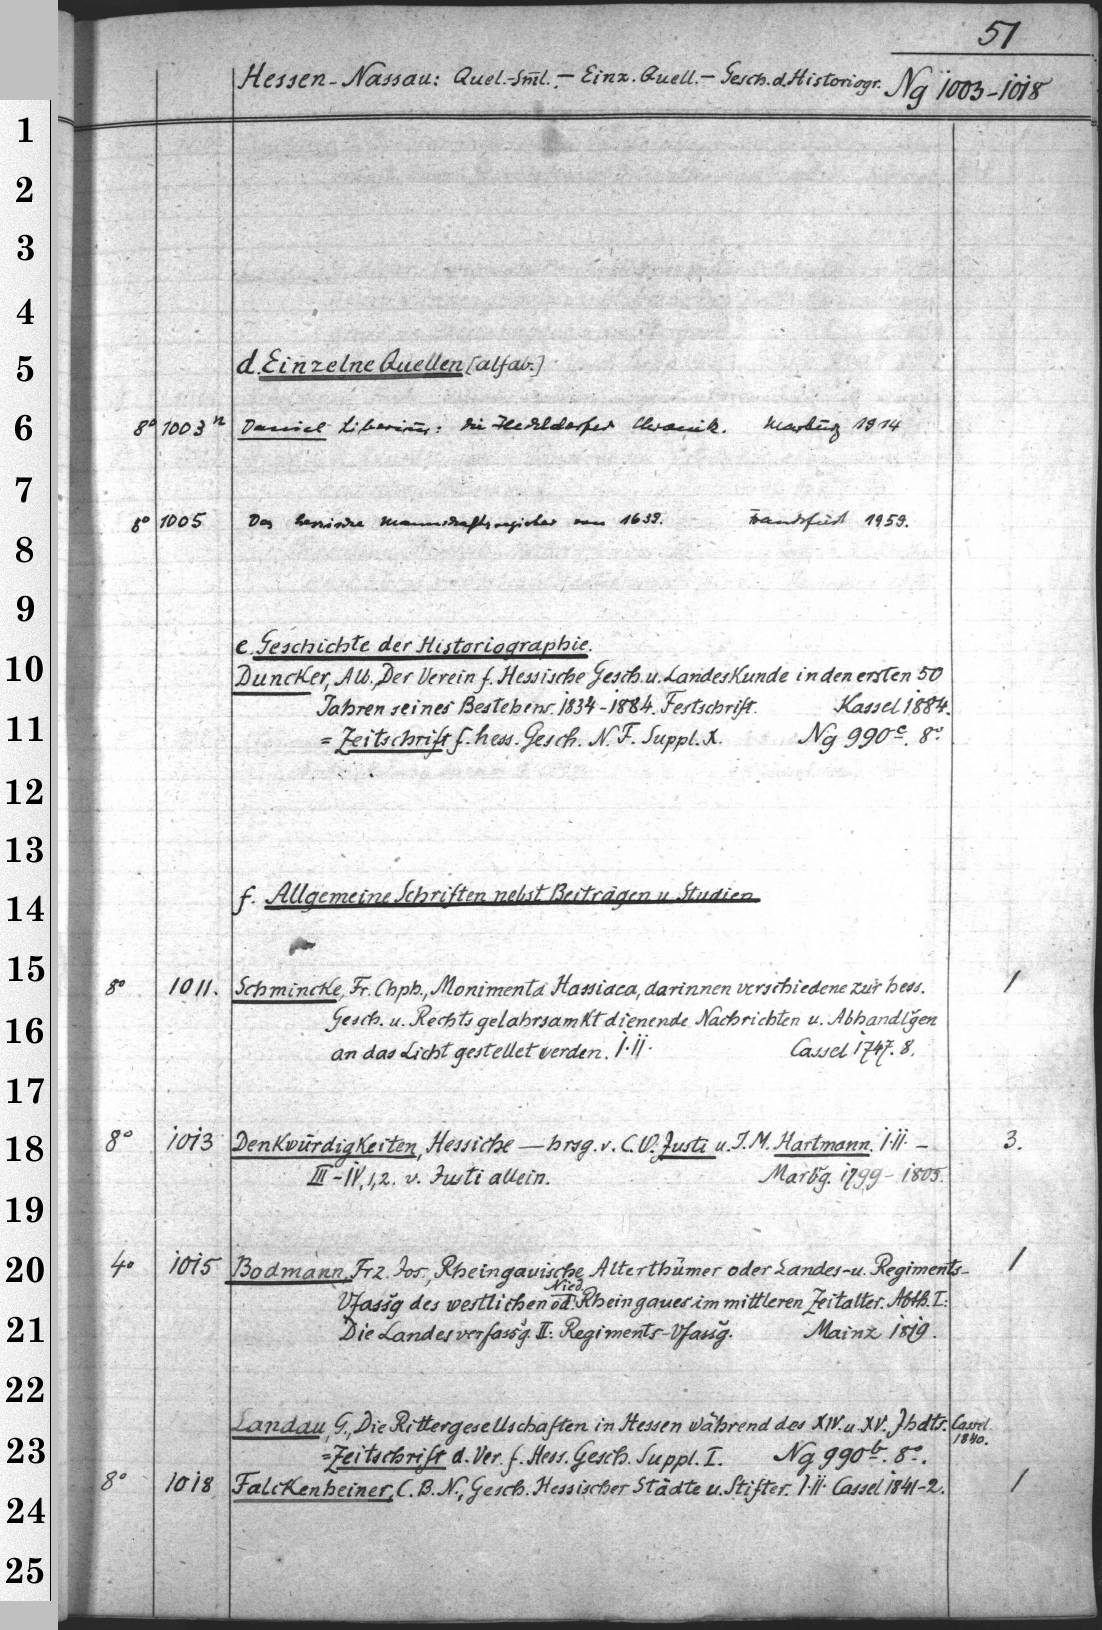 51
Hessen-Nassau: Quel.-Sml. – Einz. Quell. – Gesch. d. Historiogr. Ng 1003–1018
1
2
3
4
5
d. Einzelne Quellen [alfab.]
6
8° 1003 n Daniel Liberius: die Chronik. Marburg 1914
7
8° 1005 Das hessische Mannschaftsregister von 1639. Frankfurt 1959.
8
9
e. Geschichte der Historiographie.
10
Duncker, Alb., Der Verein f. Hessische Gesch. u. Landeskunde in den ersten 50
Jahren seines Bestehens 1834–1884. Festschrift. Kassel 1884.
11
= Zeitschrift f. hess. Gesch. N. F. Suppl. X. Ng 990c. 8°.
12
13
14
f. Allgemeine Schriften nebst Beiträgen u. Studien
15
8° 1011. Schmincke, Fr. Chph., Monimenta Hassiaca, darinnen verschiedene zur hess. 1
Gesch. u. Rechtsgelahrsamkt dienende Nachrichten u. Abhandlgen
16
an das Licht gestellet werden. I. II. Cassel 1747. 8.
17
18
8° 1013 Denkwürdigkeiten, Hessiche — hrsg. v. C. W. Justi u. J. M. Hartmann. I. II. – 3.
III–IV, 1, 2. v. Justi allein. Marbg. 1799–1805.
19
20
4° 1015 Bodmann, Frz. Jos., Rheingauische Alterthümer oder Landes- u. Regiments- 1
Vfassg des westlichen od. Nied. Rheingaues im mittleren Zeitalter. Abth. I:
21
Die Landesverfassg. II: Regiments-Vfassg. Mainz 1819.
22
Landau, G., Die Rittergesellschaften in Hessen während des XIV. u. XV. Jhdts. Cassel 1840.
23
= Zeitschrift d. Ver. f. Hess. Gesch. Suppl. I. Ng 990b. 8°.
8° 1018 Falckenheiner, C. B. N., Gesch. Hessischer Städte u. Stifter. I. II. Cassel 1841–2. 1
24
25